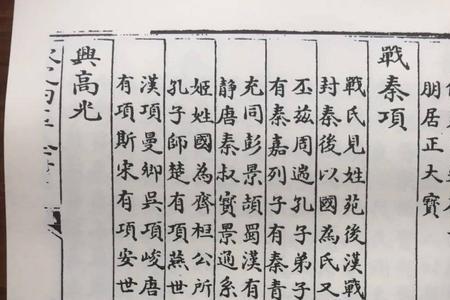 朋居正大寶
戰秦項
戰氏見姓苑後漢戰
封秦後以國為氏又
丕兹周遄孔子弟子
有秦嘉列子有秦青
充同彭景頡蜀漢有
静唐秦叔寳景通系
姬姓國為齊桓公所
孔子師楚有項燕世
漢項曼卿吳項峻唐
有項斯宋有項安世
興高光